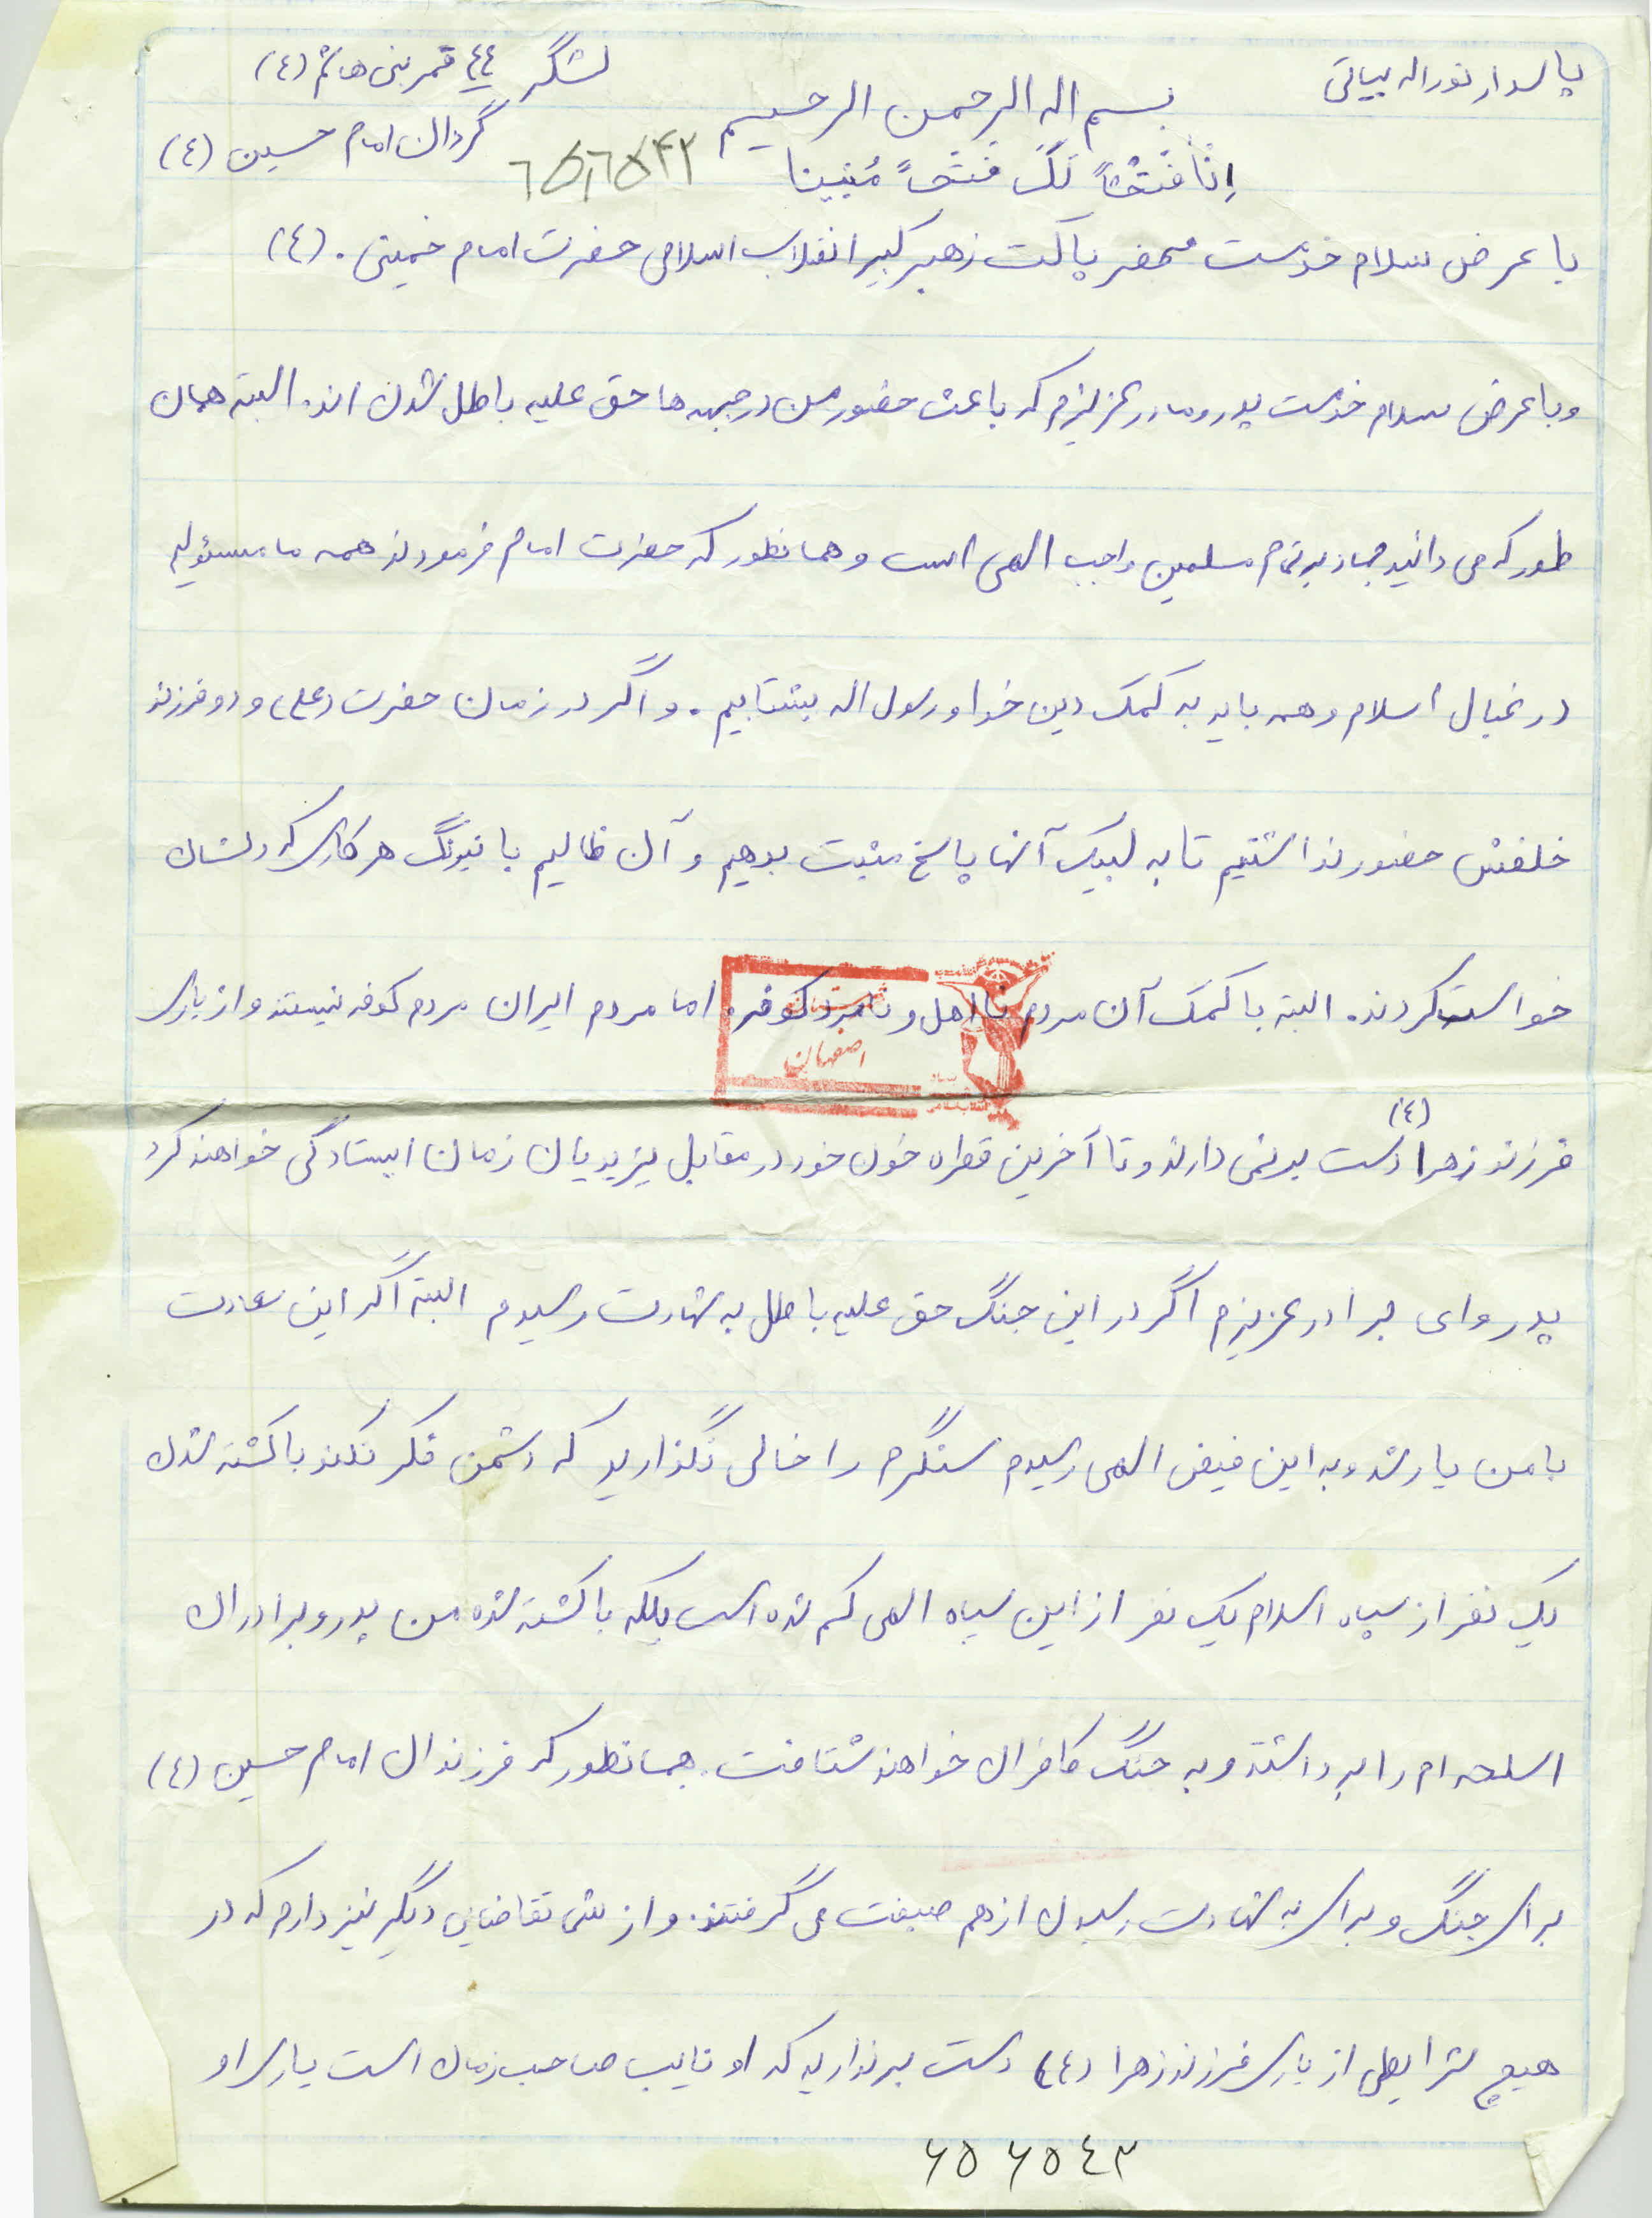 پاسدار نوراله بیاتی
لشگر ٤٤ قمر بنی هاشم (ع)
بسم اله الرحمن الرحیم
گردان امام حسین (ع)
اِنّا فَتَحْنا لَکَ فَتْحاً مُبینا
۶۵۶۵۴۳
با عرض سلام خدمت محضر پاکت رهبر کبیر انقلاب اسلامی حضرت امام خمینی . (ع)
و با عرض سلام خدمت پدر و مادر عزیزم که باعث حضور من در جبهه ها حق علیه باطل شدن اند. البته همان
طور که می دانید جهاد بر تمام مسلمین واجب الهی است و همانطور که حضرت امام فرمودند همه ما مسئولیم
در غبال اسلام و همه باید به کمک دین خدا و رسول اله بشتابیم . و اگر در زمان حضرت (علی) و دو فرزند
خلفش حضور نداشتیم تا به لبیک آنها پاسخ مثبت بدهیم و آن ظالیم با نیرنگ هر کاری که دلشان
خواست کردند. البته با کمک آن مردم نا اهل و نامرد کوفه. اما مردم ایران مردم کوفه نیستند و از یاری
اصفهان
فرزند زهرا (ع) دست بر نمی دارند و تا آخرین قطره خون خود در مقابل یزیدیان زمان ایستادگی خواهند کرد
پدر و ای برادر عزیزم اگر در این جنگ حق علیه باطل به شهادت رسیدم البته اگر این سعادت
با من یار شد و به این فیض الهی رسیدم سنگرم را خالی نگذارید که دشمن فکر نکند با کشته شدن
یک نفر از سپاه اسلام یک نفر از این سپاه الهی کم شده است بلکه با کشته شده من پدر و برادران
اسلحه ام را برداشته و به جنگ کافران خواهند شتافت. همانطور که فرزندان امام حسین (ع)
برای جنگ و برای به شهادت رسیدن از هم صبقت می گرفتند. و از شما تقاضایی دیگر نیز دارم که در
هیچ شرایطی از یاری فرزند زهرا (ع) دست برندارید که او نایب صاحب زمان است یاری او
۶۵۶۵٤۳